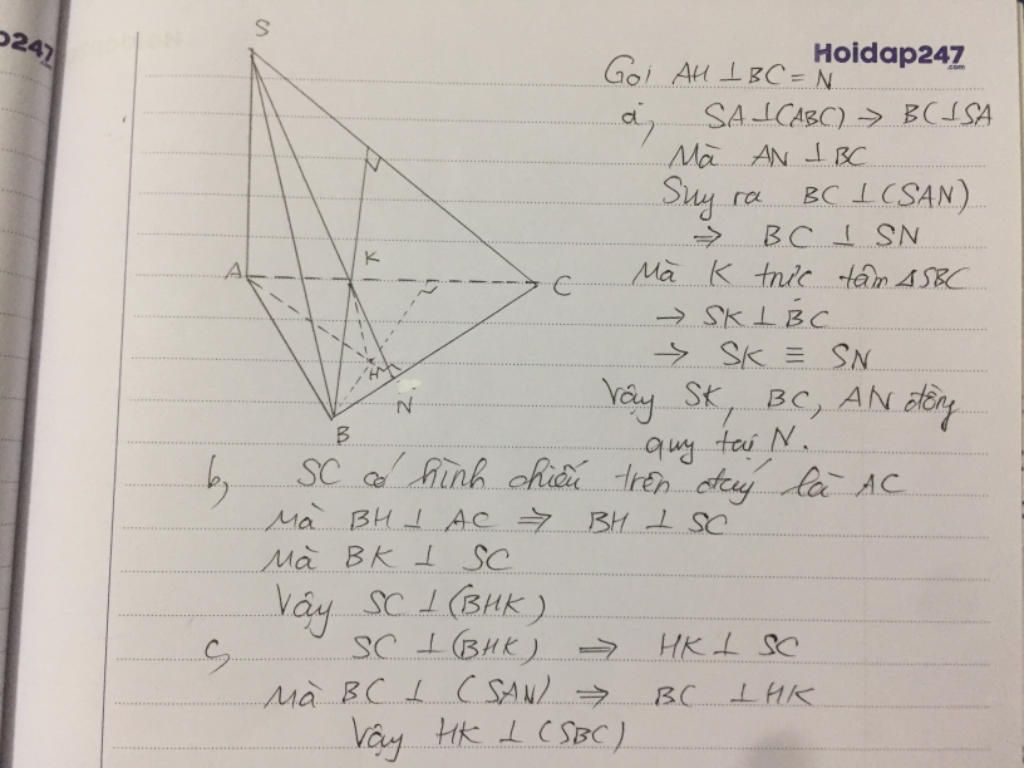 p247
Hoidap247
.com
S
Gọi AH ⊥ BC = N
a, SA ⊥ (ABC) → BC ⊥ SA
Mà AN ⊥ BC
Suy ra BC ⊥ (SAN)
⇒ BC ⊥ SN
A K C
Mà K trực tâm ΔSBC
→ SK ⊥ BC
→ SK ≡ SN
H
N
B
Vậy SK, BC, AN đồng
quy tại N.
b, SC có hình chiếu trên đáy là AC
Mà BH ⊥ AC ⇒ BH ⊥ SC
Mà BK ⊥ SC
Vậy SC ⊥ (BHK)
c, SC ⊥ (BHK) ⇒ HK ⊥ SC
Mà BC ⊥ (SAN) ⇒ BC ⊥ HK
Vậy HK ⊥ (SBC)